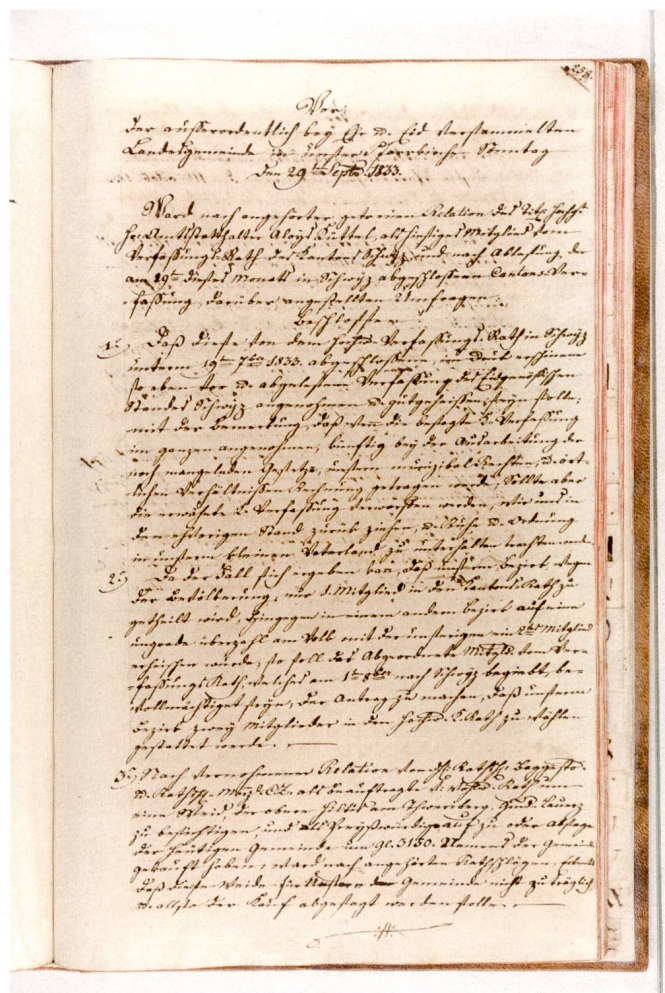 258.
Vor
der ausserordentlich bey Ehr u. Eid versammelten
Landesgemeinde in unserer Pfarrkirche Sonntag
den 29t Septr 1833.
Ward nach angehörter getreuen Relation des Titl. Hochgt
Hr. Amtsstatthalter Aloys Küttel, als hiesiges Mitglied vom
Verfassungs Rath des Kantons Schwyz und nach Ablesung der
am 19ten dieses Monats in Schwyz abgeschlossenen Cantons Ver-
fassung, darüber angestellten Umfragen,
beschlossen
1o, Daß diese von dem Verfassungs Rath in Schwyz
unterm 19ten 7bre 1833. abgeschlossene, im Druk erschienene
so eben vor u. abgelesene Verfassung des Eidgenössischen
Standes Schwyz angenohmen u. gutgeheissen seyn solle;
mit der Bemerkung, daß wenn die besagte K. Verfassung
im ganzen angenohmen, künftig bey der Ausarbeitung der
noch mangelnden Gesetze, unsern municipal Rechten, u. ört-
lichen Verhältnissen Rechnung getragen werde. Sollte aber
die erwähnte K. Verfassung verworfen werden, wir uns in
den ehvorigen Stand zurük ziehen, u. Ruhe u. Ordnung
in unserm kleinen Vaterland zu unterhalten trachten
2o, Da der Fall sich ergeben kan, daß unserm Bezirk wegen
der Bevölkerung, nur 1. Mitglied in den Kantons Rath zu
getheilt wird, hingegen in einem andern Bezirk auf eine
ungrade überzahl am Volk mit der unsrigen ein 2tes Mitglied
erheischen würde; so soll das Abgeordnete Mitgld vom Ver-
fassungs Rath, welches am 1ten 8bre nach Schwyz begiebt, be-
vollmächtiget seyn, den Antrag zu machen, daß unserm
Bezirk zwey Mitglieder in den K. Rath zu wählen
gestattet werde.
3o, Nach vernohmener Relation von Rathsh.
u. Rathsh. als beauftragte v. Rath um
eine Weid, der obere am Gmd. Lauerz
zu besichtigen, und auf zu oder absage
der heutigen Gemeinde um gl. 3150. Namens der Gemeind
gekauft haben, ward nach angehörten Rathschlägen,
daß diese Weide für Gemeinde nicht zuträglich
u. also der Kauf abgesagt werden solle.